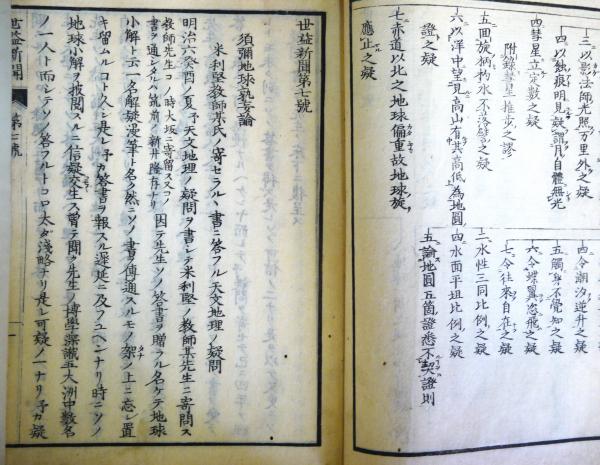 三以影法師光照万里外之疑
四以蝕痕明見疑謂月自體無光
四彗星立定数之疑
附録彗星推歩之謬
五面旋柄杓水不落譬之疑
六以洋中望見高山有其高低為地圓
證之疑
七赤道以北之地球偏重故地球旋
應止之疑
四令潮汐逆升之疑
五觸身不覺知之疑
六令蝶翼恣飛之疑
七令往来自在之疑
三水性三同比例之疑
四水面平坦比例之疑
五論地圓五箇證悉不契證則
世益新聞第七號
須彌地球孰妄論
米利堅教師某氏ノ寄セラルヽ書ニ答フル天文地理ノ疑問
明治六癸酉ノ夏予天文地理ノ疑問ヲ書シテ米利堅ノ教師某先生ニ寄問ス
教師先生コノ時大坂ニ寄留ス又コノ書ヲ通シタルハ筑前ノ新井隆存ナリ
因テ先生ソノ答書ヲ贈ラル名ケテ地球
小解ト云一名解疑漫筆ト名ク然ニソノ書傳通スルモノ架ノ上ニ忘レ置
キ留ムルコト久シ是レ予カ答書ヲ報スル遅延ニ及フユヘンナリ時ニソノ
地球小解ヲ披閲スルニ信疑交生ス曽テ聞ク先生ノ博學深識五大洲中数名
ノ一人ト而シテソノ答フルトコロ太タ淺略ナリ是レ可疑ノ一ナリ予カ疑
世益新聞 第七號